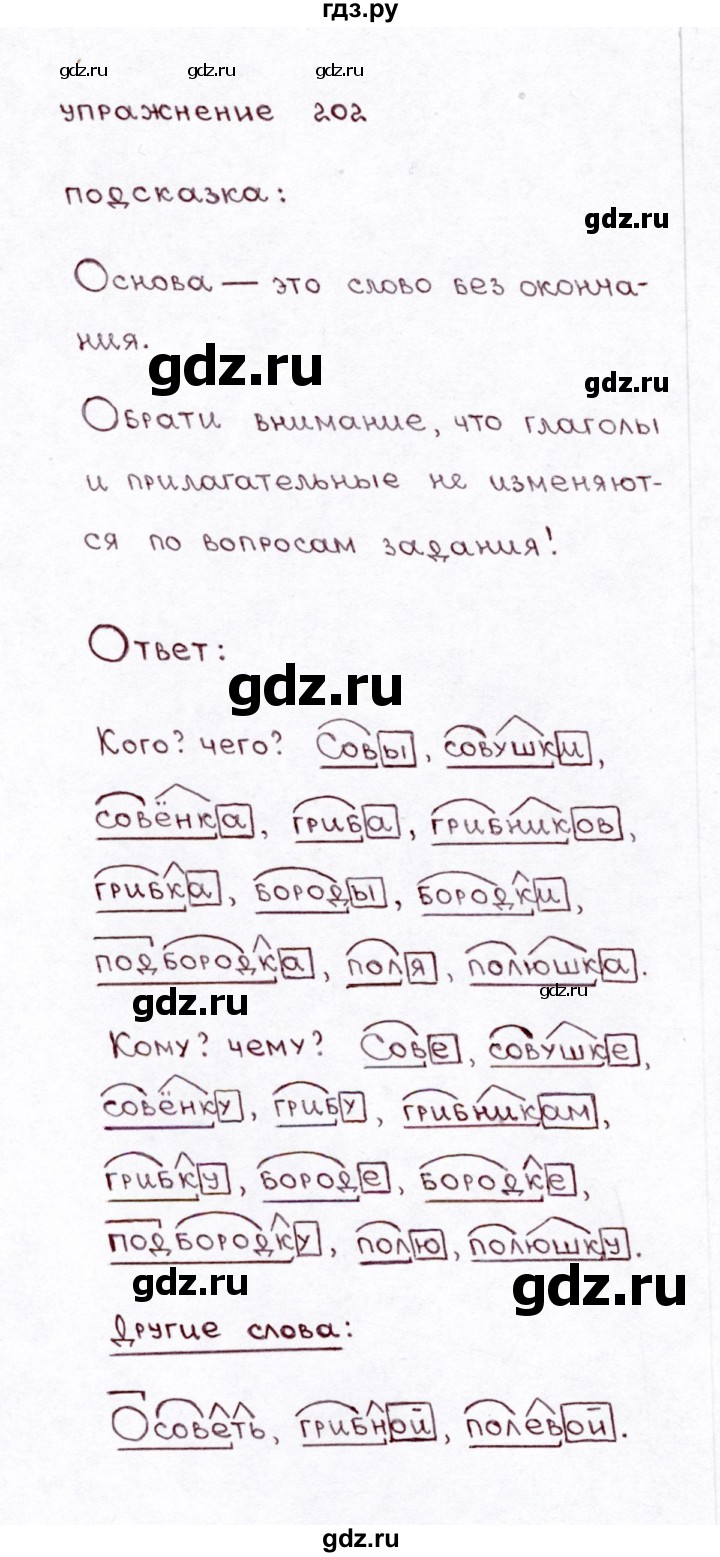 гдз.ру
gdz.ru gdz.ru gdz.ru
упражнение 202
подсказка:
gdz.ru
Основа — это слово без оконча-
ния.
gdz.ru
gdz.ru
Обрати внимание, что глаголы
и прилагательные не изменяют-
ся по вопросам задания!
Ответ:
gdz.ru
Кого? чего? Совы, совушки,
совёнка, гриба, грибников,
грибка, бороды, бородки,
подбородка, поля, полюшка.
gdz.ru
gdz.ru
Кому? чему? Сове, совушке,
совёнку, грибу, грибникам,
грибку, бороде, бородке,
подбородку, полю, полюшку.
gdz.ru
gdz.ru
Другие слова:
Осоветь, грибной, полевой.
gdz.ru